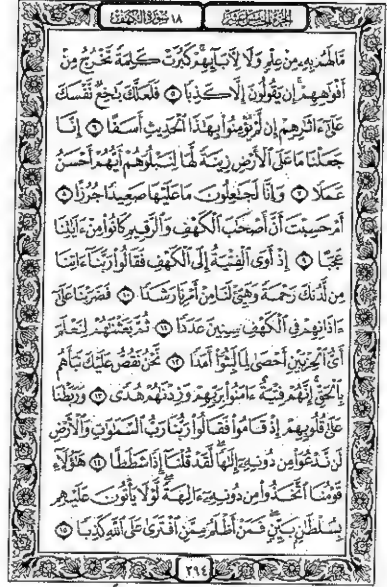 الجزء الخامس عشر
١٨ سورة الكهف
مَّا لَهُم بِهِۦ مِنْ عِلْمٍ وَلَا لِءَابَآئِهِمْ كَبُرَتْ كَلِمَةً تَخْرُجُ مِنْ
أَفْوَٰهِهِمْ إِن يَقُولُونَ إِلَّا كَذِبًا ٥ فَلَعَلَّكَ بَٰخِعٌ نَّفْسَكَ
عَلَىٰٓ ءَاثَٰرِهِمْ إِن لَّمْ يُؤْمِنُوا۟ بِهَٰذَا ٱلْحَدِيثِ أَسَفًا ٦ إِنَّا
جَعَلْنَا مَا عَلَى ٱلْأَرْضِ زِينَةً لَّهَا لِنَبْلُوَهُمْ أَيُّهُمْ أَحْسَنُ
عَمَلًا ٧ وَإِنَّا لَجَٰعِلُونَ مَا عَلَيْهَا صَعِيدًا جُرُزًا ٨
أَمْ حَسِبْتَ أَنَّ أَصْحَٰبَ ٱلْكَهْفِ وَٱلرَّقِيمِ كَانُوا۟ مِنْ ءَايَٰتِنَا
عَجَبًا ٩ إِذْ أَوَى ٱلْفِتْيَةُ إِلَى ٱلْكَهْفِ فَقَالُوا۟ رَبَّنَآ ءَاتِنَا
مِن لَّدُنكَ رَحْمَةً وَهَيِّئْ لَنَا مِنْ أَمْرِنَا رَشَدًا ١٠ فَضَرَبْنَا عَلَىٰٓ
ءَاذَانِهِمْ فِى ٱلْكَهْفِ سِنِينَ عَدَدًا ١١ ثُمَّ بَعَثْنَٰهُمْ لِنَعْلَمَ
أَىُّ ٱلْحِزْبَيْنِ أَحْصَىٰ لِمَا لَبِثُوٓا۟ أَمَدًا ١٢ نَّحْنُ نَقُصُّ عَلَيْكَ نَبَأَهُم
بِٱلْحَقِّ إِنَّهُمْ فِتْيَةٌ ءَامَنُوا۟ بِرَبِّهِمْ وَزِدْنَٰهُمْ هُدًى ١٣ وَرَبَطْنَا
عَلَىٰ قُلُوبِهِمْ إِذْ قَامُوا۟ فَقَالُوا۟ رَبُّنَا رَبُّ ٱلسَّمَٰوَٰتِ وَٱلْأَرْضِ
لَن نَّدْعُوَا۟ مِن دُونِهِۦٓ إِلَٰهًا لَّقَدْ قُلْنَآ إِذًا شَطَطًا ١٤ هَٰٓؤُلَآءِ
قَوْمُنَا ٱتَّخَذُوا۟ مِن دُونِهِۦٓ ءَالِهَةً لَّوْلَا يَأْتُونَ عَلَيْهِم
بِسُلْطَٰنٍۭ بَيِّنٍ فَمَنْ أَظْلَمُ مِمَّنِ ٱفْتَرَىٰ عَلَى ٱللَّهِ كَذِبًا ١٥
٢٩٤